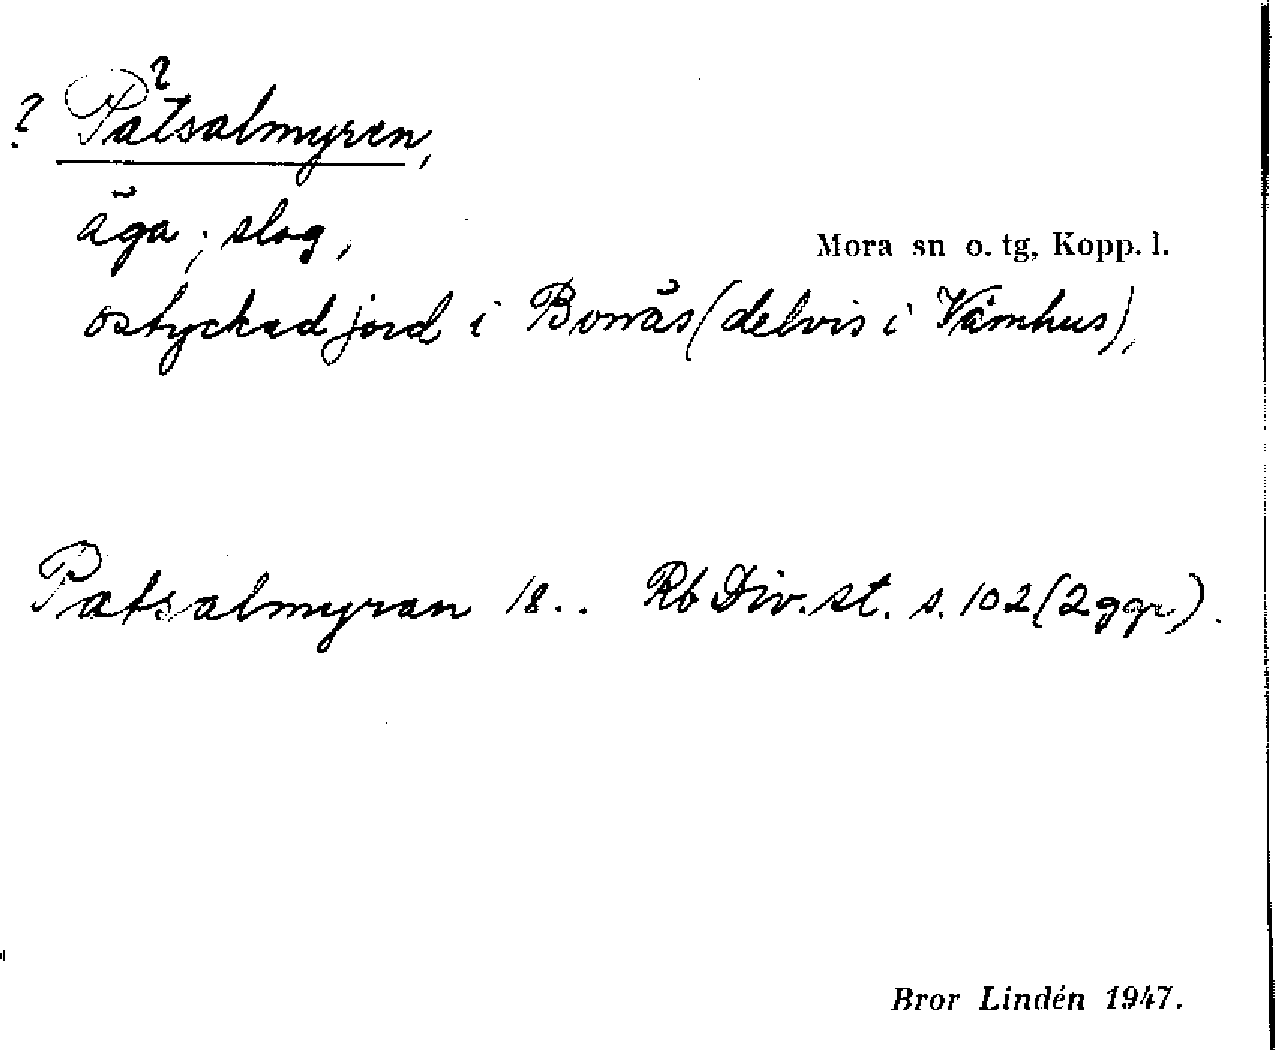 ? Patsalmyren,
?
äga; slog,
Mora sn o. tg, Kopp. l.
ostyckad jord i Bonäs (delvis i Våmhus),
Patsalmyran 18.. Rb Div. st. s. 102 (2 ggr).
Bror Lindén 1947.